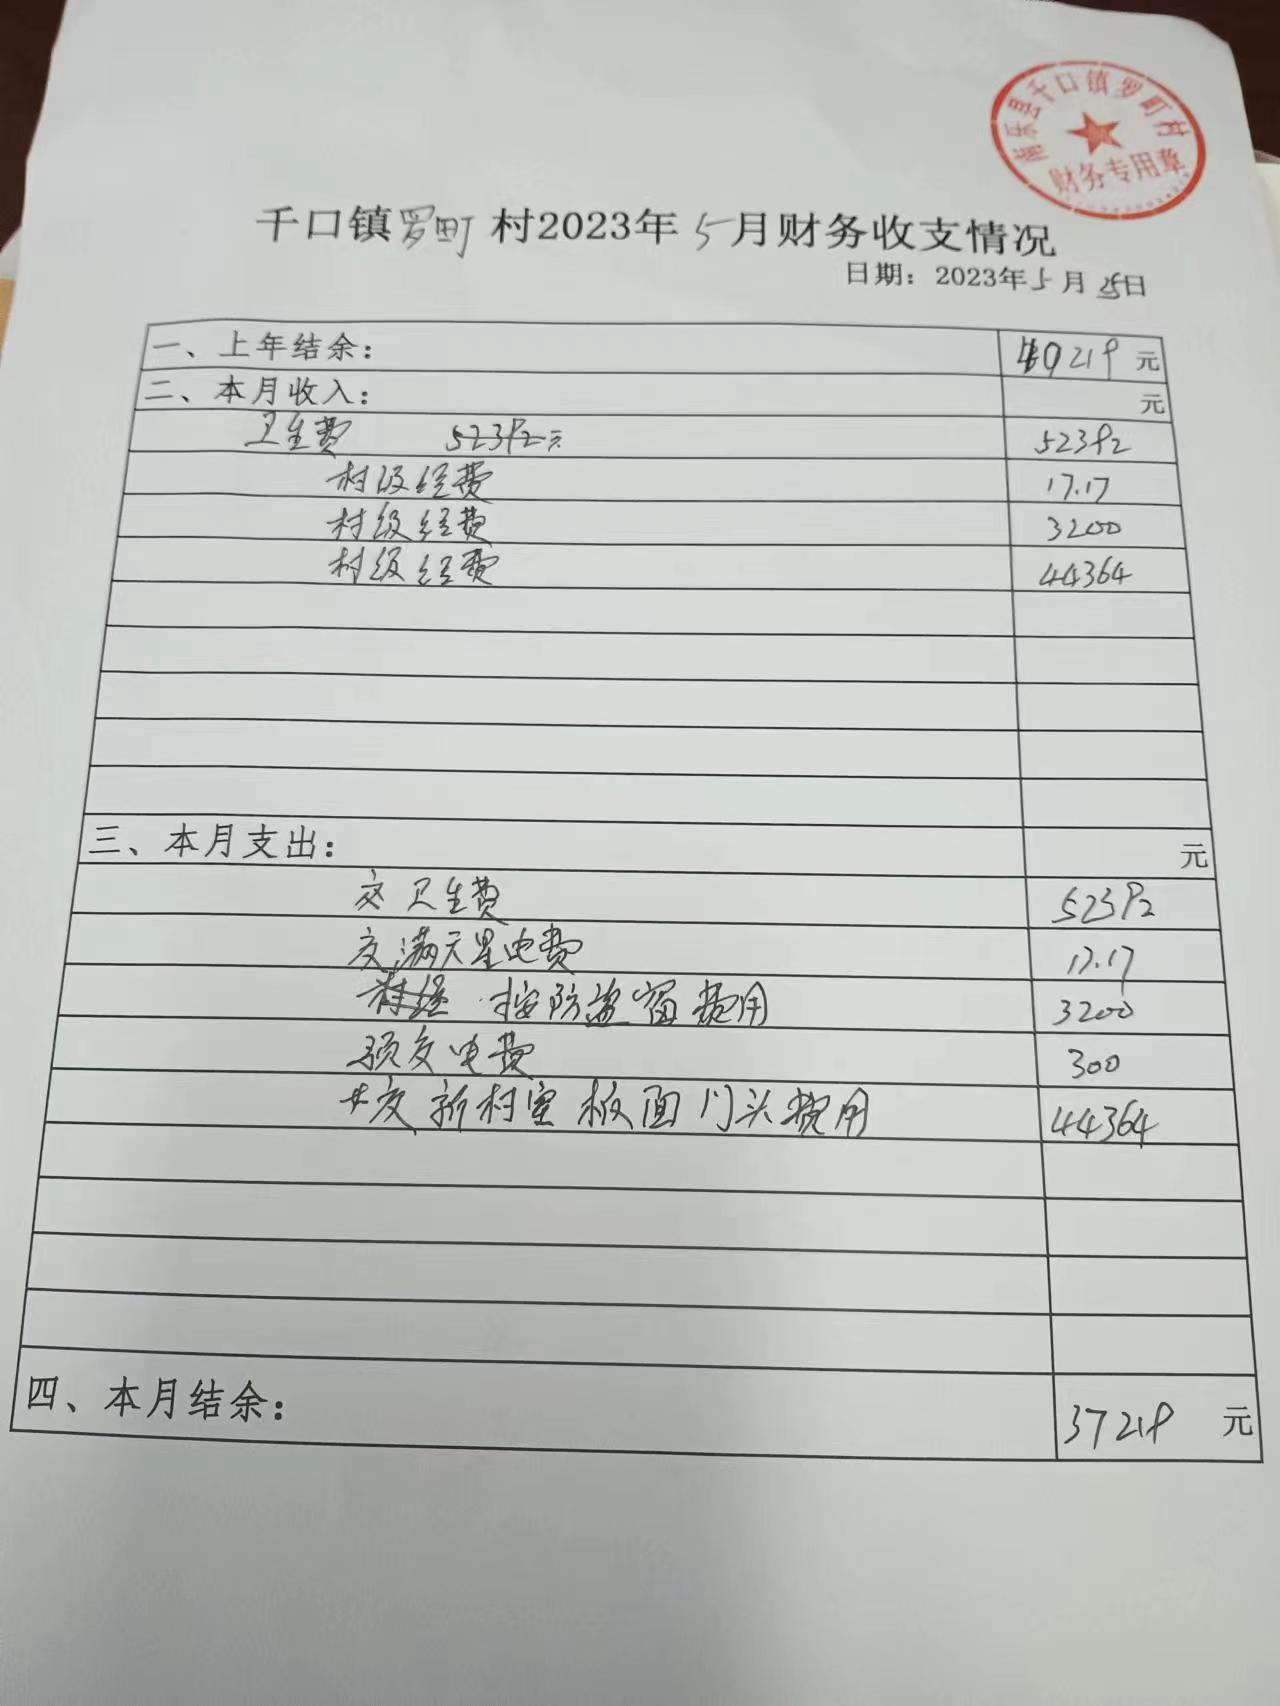 南乐县千口镇罗町村
财务专用章
千口镇罗町村2023年5月财务收支情况
日期：2023年5月25日
一、上年结余： 40219元
二、本月收入： 元
卫生费 52392元 52392
村级经费 17.17
村级经费 3200
村级经费 44364
三、本月支出： 元
交卫生费 52392
交满天星电费 17.17
按防盗窗费用 3200
预交电费 300
交新村室板面门头费用 44364
四、本月结余： 37219元